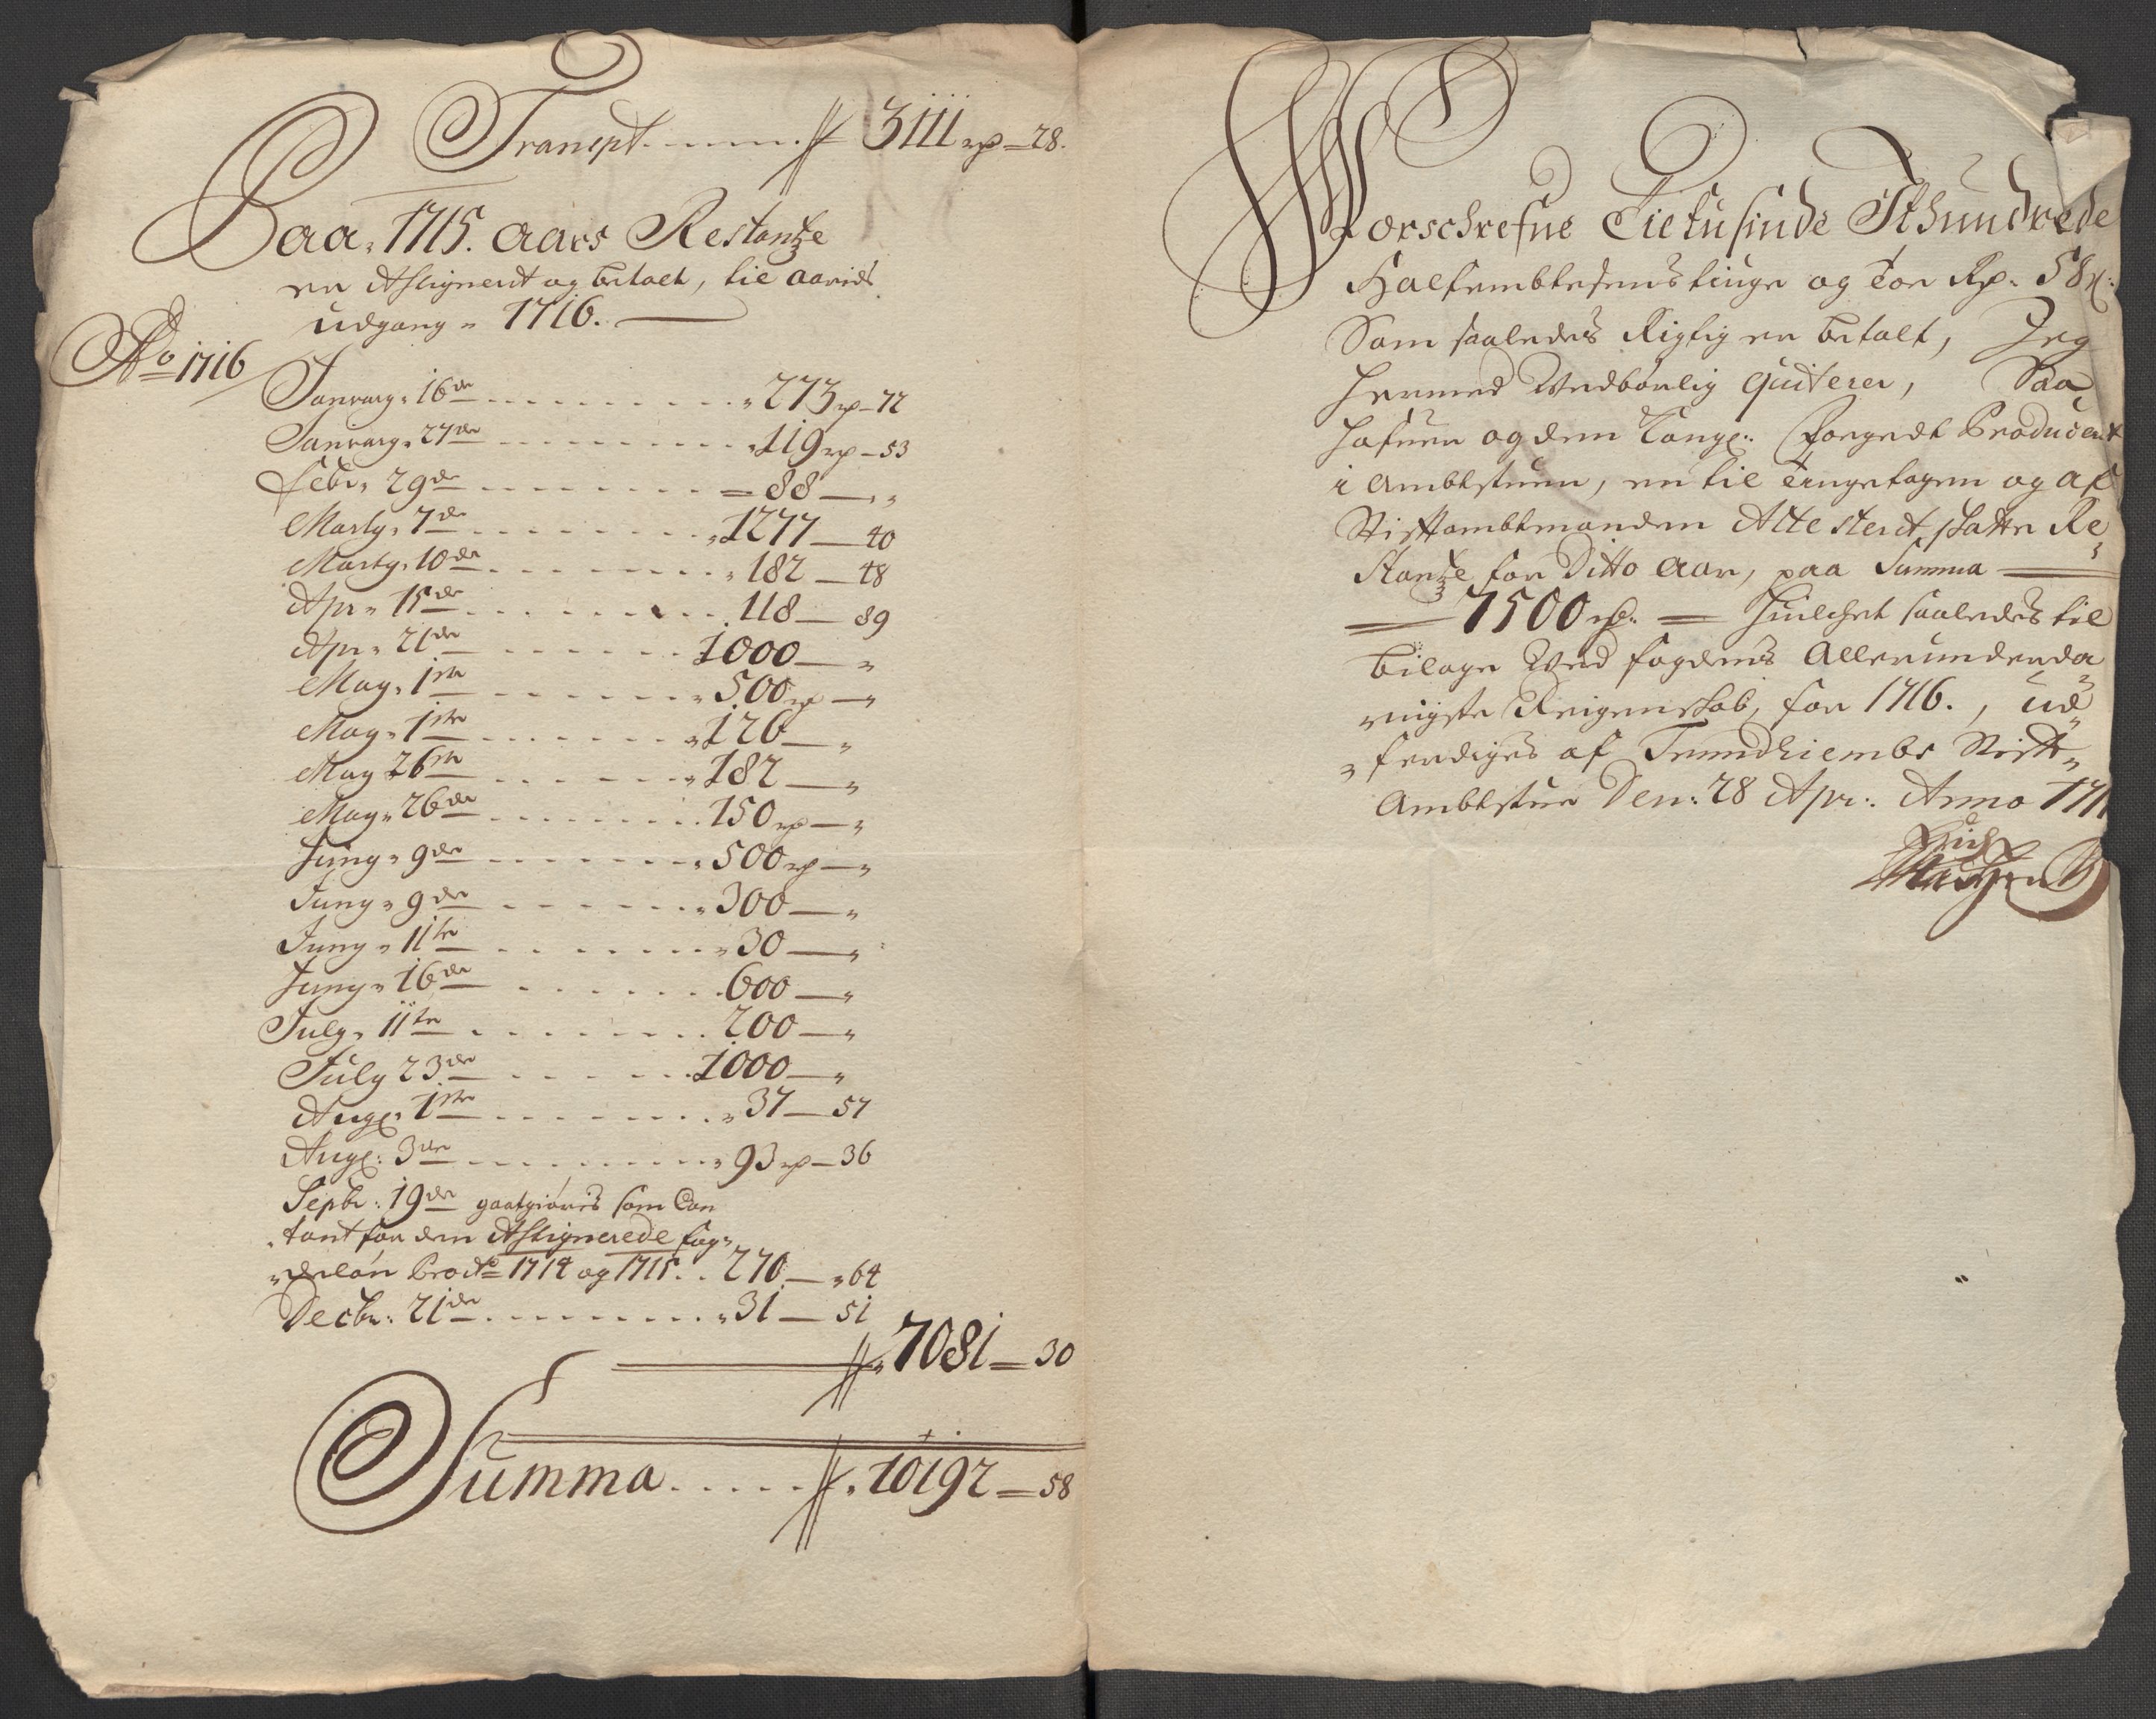 Transpt. 3111 rp - 28.
Paa 1715. aars Restantze
er Assignerit og betalt, til aarids
udgang 1716.
Ao 1716
January 16de 273 rp - 72
January 27de 119 rp - 53
Febr. 29de 88 — "
Marty 7de 1277 — 40
Marty 10de 182 — 48
Apr. 15de 118 — 89
Apr. 21de 1000 — "
May 1ste 500 rp — "
May 1ste 126 — "
May 26de 182 — "
May 26de 150 rp — "
Juny 9de 500 rp — "
Juny 9de 300 — "
Juny 11te 30 — "
Juny 16de 600 — "
July 11te 200 — "
July 23de 1000 — "
Aug: 1ste 37 — 57
Aug: 3de 93 rp — 36
Septbr: 19de godtgiøris som Con
tant for den Assignerede fog
deløn pro Ao 1714 og 1715. 270 — 64
Decbr: 21de 31 — 51
7081 — 30
Summa 10192 — 58
Forschrefne Tietusinde Ithundrede
Halfembtesindstiuge og toe Rp. 58 s:
Som saaledes Rigtig er betalt, Jeg
hermed Wedbørlig Quiterer, Saa
hafuer og dem Kongl: foged Producert
i Ambtstuen, en til Tingetagen og af
Stiftambtmanden Attesterit skatte Re
stantze for Ditto Aar, paa Summa
7500 rp. huilchet saaledes til
bilage Wed fogdens Allerunderda
nigste Reigenskab, for 1716., ud
ferdiges af Trundhiembs Stift
Ambtstue Den: 28 Apr: Anno 171